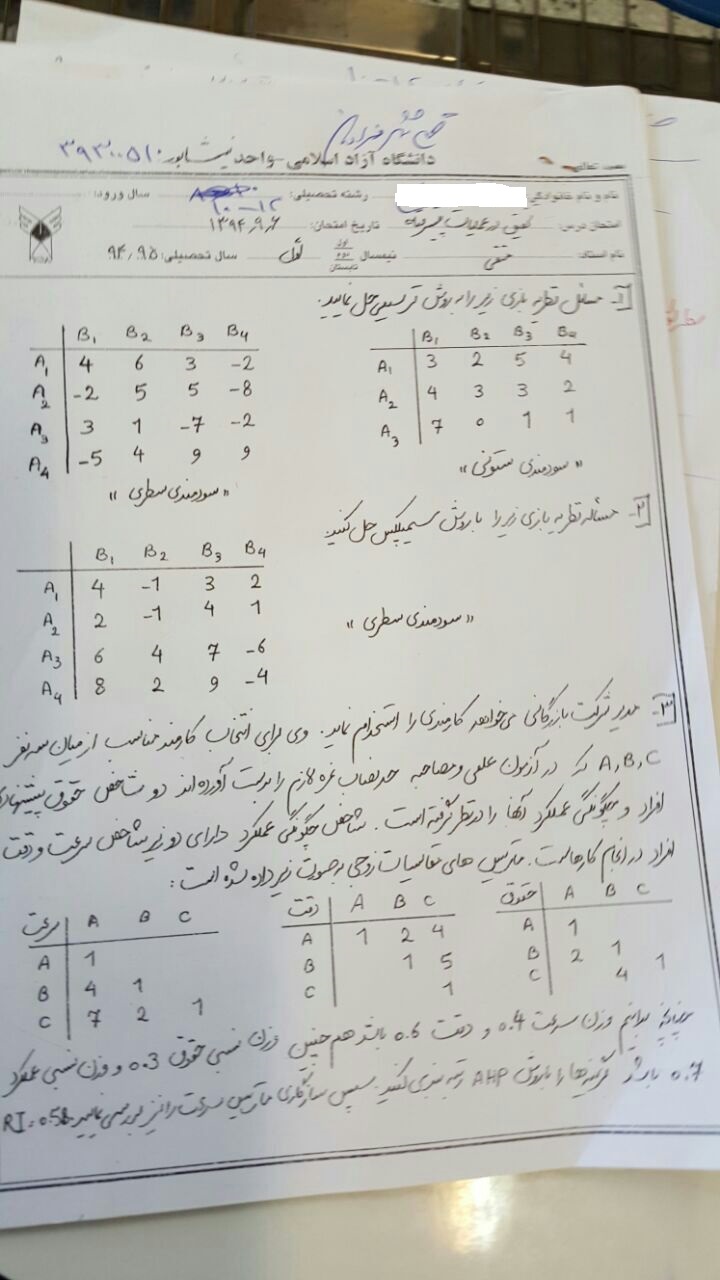 دانشگاه آزاد اسلامی-واحد نیشابور
نام و نام خانوادگی رشته تحصیلی: ۱۰-۱۲ سال ورود:
امتحان درس: تحقیق در عملیات پیشرفته تاریخ امتحان: ۱۳۹۴،۹،۶
نام استاد: نیمسال اول دوم تابستان اول سال تحصیلی: ۹۴،۹۵
۱- مسائل نظریه بازی زیر را به روش ترسیمی حل نمایید.
B1 B2 B3 B4
A1 3 2 5 4
A2 4 3 3 2
A3 7 0 1 1
«سودمندی ستونی»
B1 B2 B3 B4
A1 4 6 3 -2
A2 -2 5 5 -8
A3 3 1 -7 -2
A4 -5 4 9 9
«سودمندی سطری»
۲- مسأله نظریه بازی زیر را با روش سیمپلکس حل کنید.
B1 B2 B3 B4
A1 4 -1 3 2
A2 2 -1 4 1
A3 6 4 7 -6
A4 8 2 9 -4
«سودمندی سطری»
۳- مدیر شرکت بازرگانی می‌خواهد کارمندی را استخدام نماید. وی برای انتخاب کارمند مناسب از میان سه نفر
A, B, C که در آزمون علمی و مصاحبه حد نصاب نمره لازم را بدست آورده‌اند دو شاخص حقوق پیشنهادی
افراد و چگونگی عملکرد آنها را در نظر گرفته است. شاخص چگونگی عملکرد دارای دو زیر شاخص سرعت و دقت
افراد در انجام کارهاست. ماتریس های مقایسات زوجی بصورت زیر داده شده است:
حقوق A B C
A 1
B 2 1
C 4 1
دقت A B C
A 1 2 4
B 1 5
C 1
سرعت A B C
A 1
B 4 1
C 7 2 1
چنانچه بدانیم وزن سرعت 0.4 و دقت 0.6 باشد هم چنین وزن نسبی حقوق 0.3 و وزن نسبی عملکرد
0.7 باشد گزینه‌ها را با روش AHP رتبه بندی کنید. سپس سازگاری ماتریس سرعت را نیز بررسی نمایید. RI=0.58